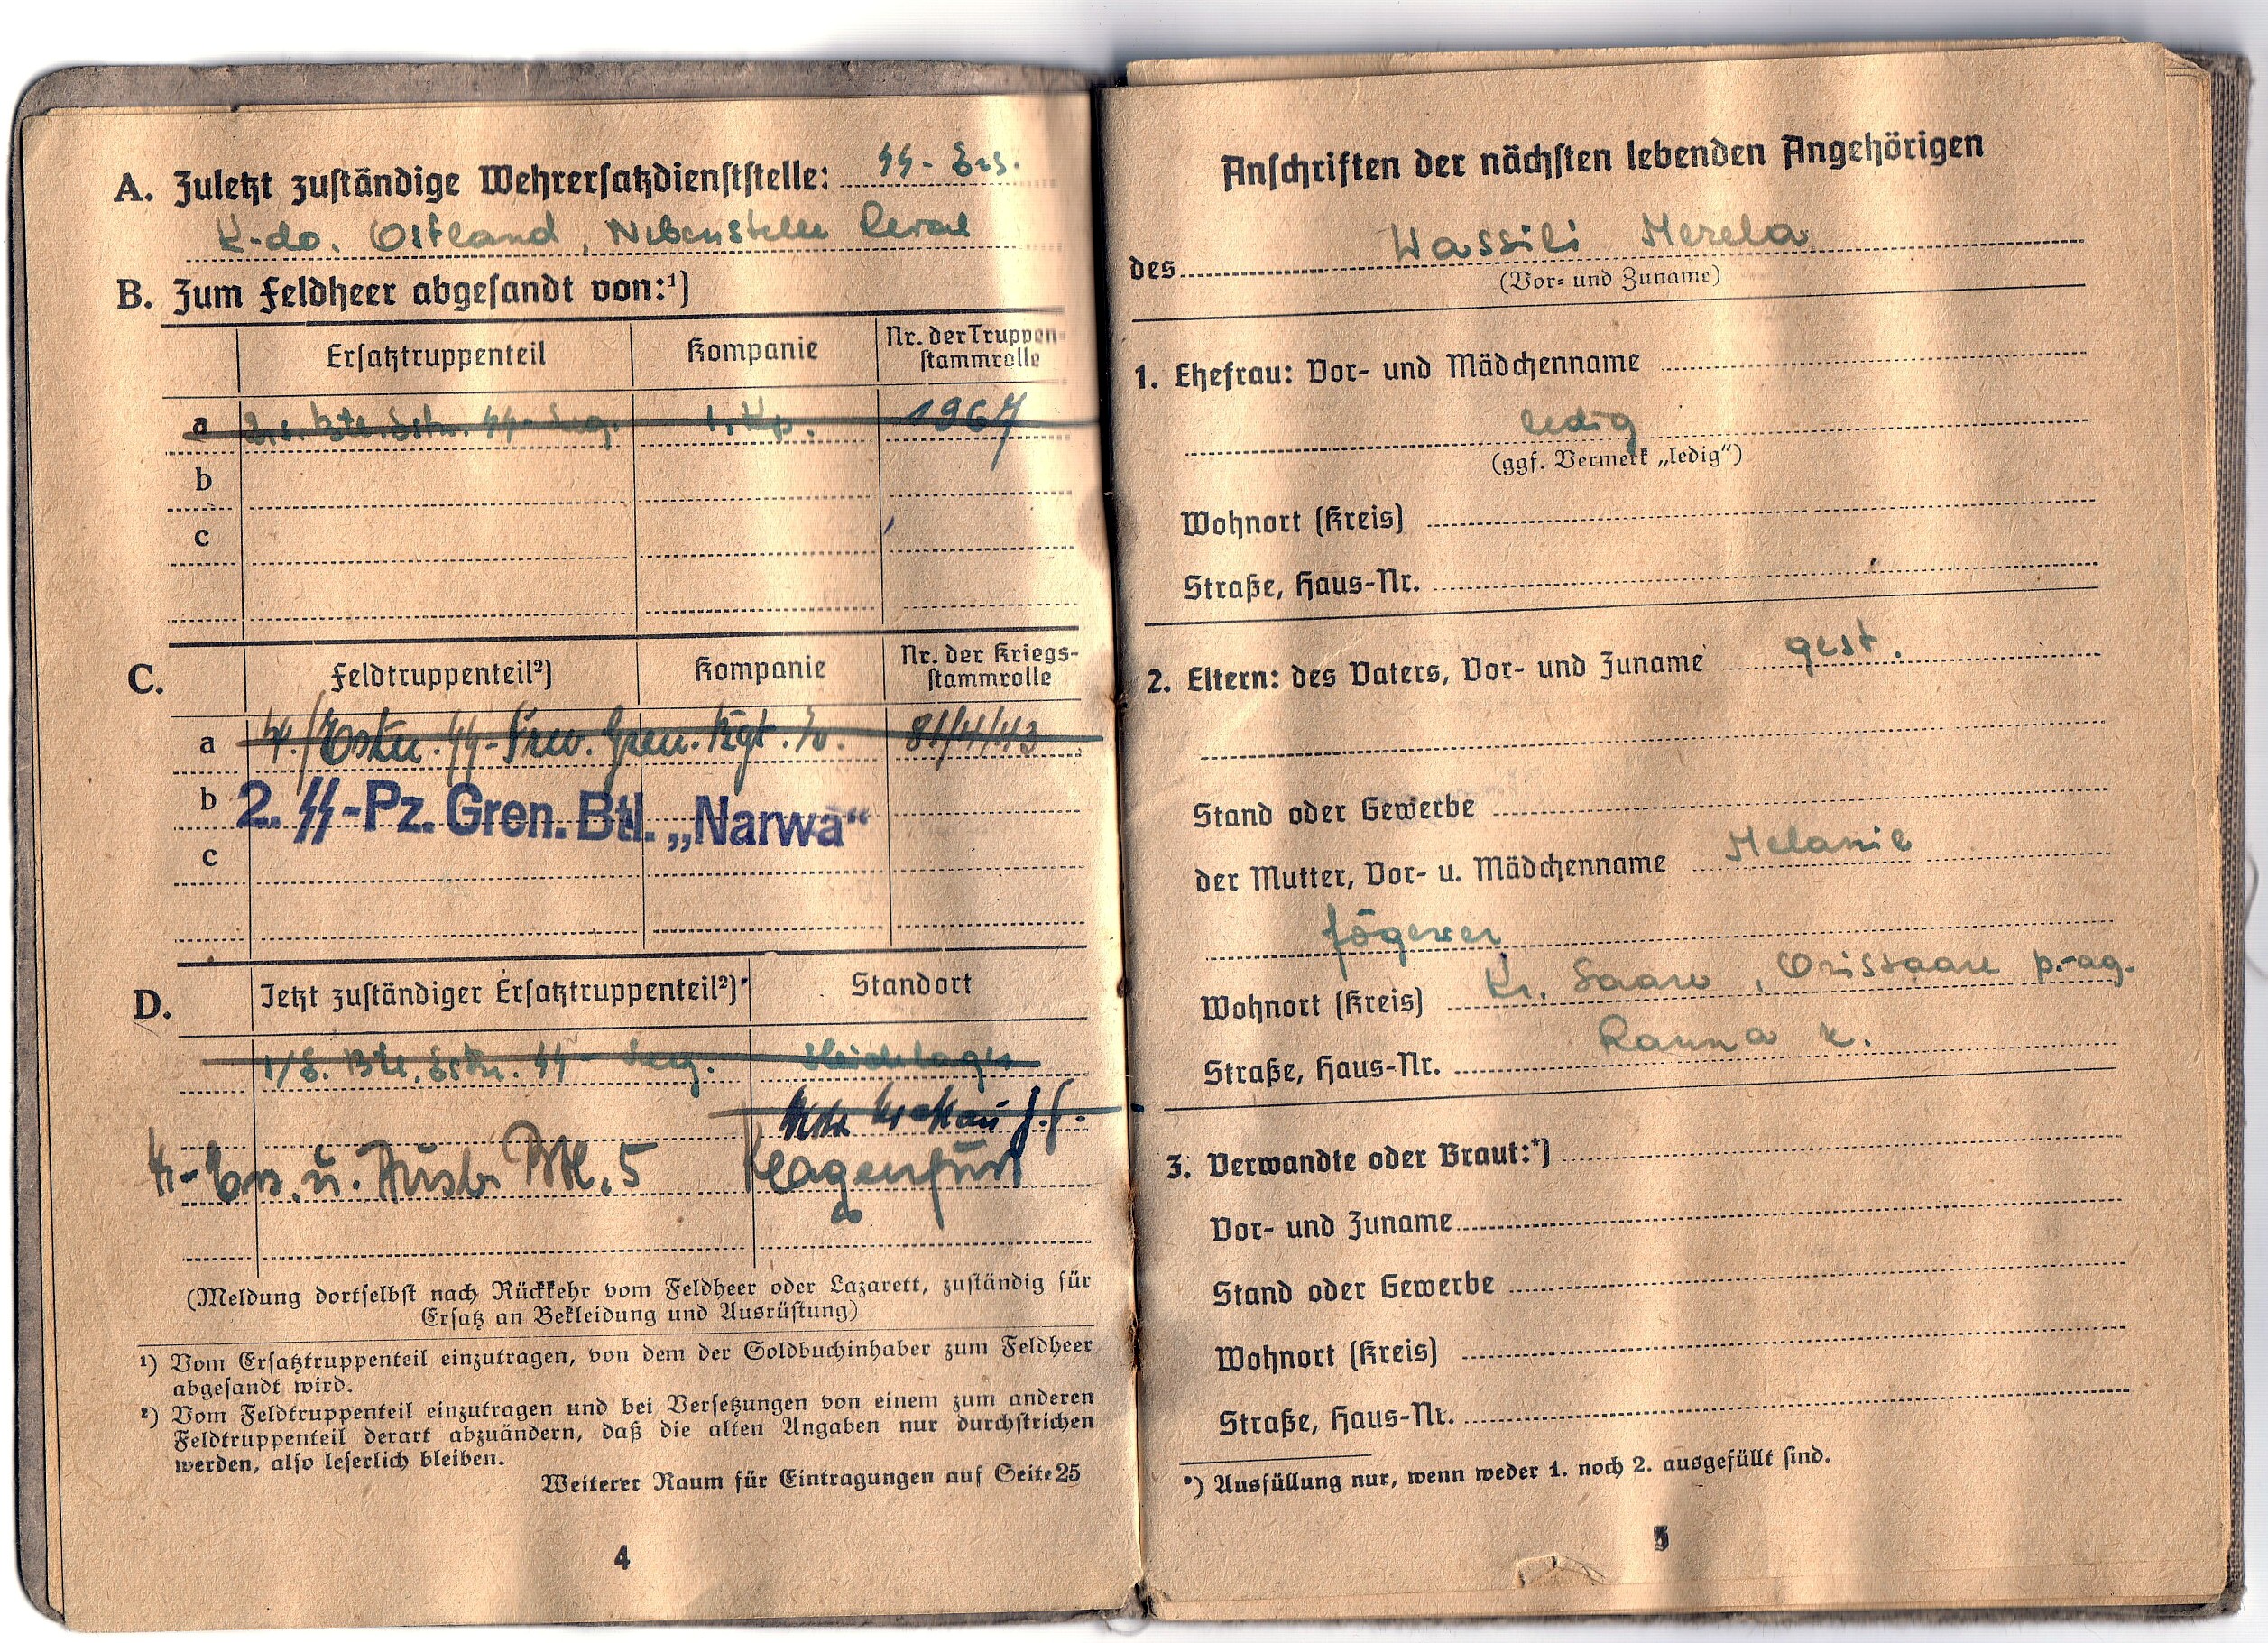 A. Zuletzt zuständige Wehrersatzdienststelle: SS-Ers.
K-do. Ostland, Nebenstelle Reval
B. Zum Feldheer abgesandt von:¹)
Ersatztruppenteil Kompanie Nr. der Truppen-
stammrolle
a Ers. Btl. Estn. SS-Leg. 1. Kp. 1967
b
c
C. Feldtruppenteil²) Kompanie Nr. der Kriegs-
stammrolle
a 4./Estn. SS-Frw. Gren. Rgt. 81/4/43
b 2. SS-Pz. Gren. Btl. „Narwa“
c
D. Jetzt zuständiger Ersatztruppenteil²) Standort
1/E. Btl. Estn. SS-Leg. Heidelager
Krakau
SS-Ers. u. Ausb. Btl. 5 Klagenfurt
(Meldung dortselbst nach Rückkehr vom Feldheer oder Lazarett, zuständig für
Ersatz an Bekleidung und Ausrüstung)
¹) Vom Ersatztruppenteil einzutragen, von dem der Soldbuchinhaber zum Feldheer
abgesandt wird.
²) Vom Feldtruppenteil einzutragen und bei Versetzungen von einem zum anderen
Feldtruppenteil derart abzuändern, daß die alten Angaben nur durchstrichen
werden, also leserlich bleiben.
Weiterer Raum für Eintragungen auf Seite 25
4
Anschriften der nächsten lebenden Angehörigen
des Wassili Merela
(Vor- und Zuname)
1. Ehefrau: Vor- und Mädchenname
ledig
(ggf. Vermerk „ledig“)
Wohnort (Kreis)
Straße, Haus-Nr.
2. Eltern: des Vaters, Vor- und Zuname gest.
Stand oder Gewerbe
der Mutter, Vor- u. Mädchenname Melanie
Jõgewer
Wohnort (Kreis) Kr. Saare, Orissaare p.-ag.
Straße, Haus-Nr. Ranna k.
3. Verwandte oder Braut:*)
Vor- und Zuname
Stand oder Gewerbe
Wohnort (Kreis)
Straße, Haus-Nr.
*) Ausfüllung nur, wenn weder 1. noch 2. ausgefüllt sind.
5